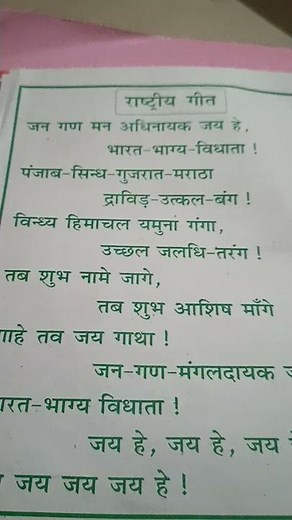 राष्ट्रीय गीत
जन गण मन अधिनायक जय हे,
भारत-भाग्य-विधाता !
पंजाब-सिन्ध-गुजरात-मराठा
द्राविड़-उत्कल-बंग !
विन्ध्य हिमाचल यमुना गंगा,
उच्छल जलधि-तरंग !
तब शुभ नामे जागे,
तब शुभ आशिष माँगे
गाहे तव जय गाथा !
जन-गण-मंगलदायक
रत-भाग्य विधाता !
जय हे, जय हे, जय
जय जय जय हे !